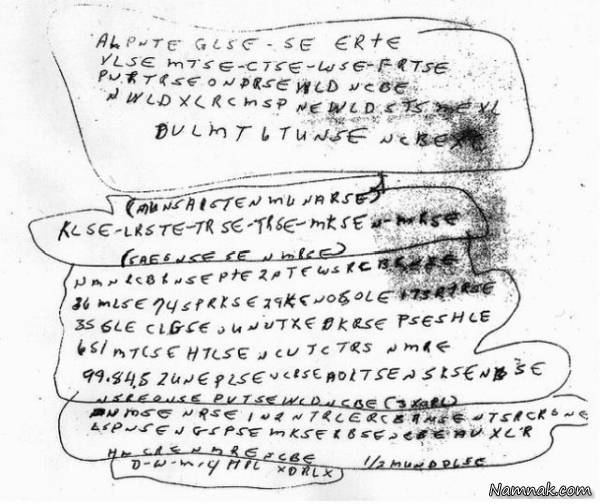 ALPNTE GLSE-SE ERTE
VLSE MTSE-CTSE-WSE-FRTSE
PNRTRSEONDRSEWLD NCBE
NWLDXLRCMSP NEWLDSTSMEXL
DULMT6TUNSE NCBEXC
(MUNSAISTENMUNARSE)
KLSE-LRSTE-TRSE-TRSE-MKSEN-MRSE
(SAEGNSESE NMRSE)
NMNRCBRNSEPTE2PTEWSRCBRNSE
36MLSE 74SPRKSE29KENOSOLE 173RTRSE
35GLE CLGSEUNUTXEDKRSE PSESHLE
651MTCSE HTLSE NCUTCTRS NMRE
99.84.52UNEPLSENCRSEAOLTSENSKSENBSE
NSREONSE PVTSEWLDNCBE (3XORL)
NMSE NRSE IN2NTRLERCBRNSE NTSRCRONE
LSPNSENGSPSE MKSERBSENCBEAUXLR
HM CRE NMRE NCBE 1/2MUNDDLSE
D-W-M-4 MPL XDRLX
Namnak.com